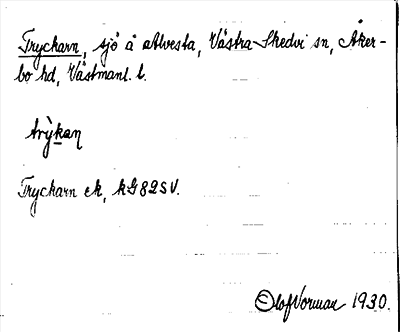 Tryckarn, sjö å Alvesta, Västra Skedvi sn, Åker-
bo hd, Västmanl. l.
trỳkan
Tryckarn ek, kG 82 SV.
Olof Norman 1930.